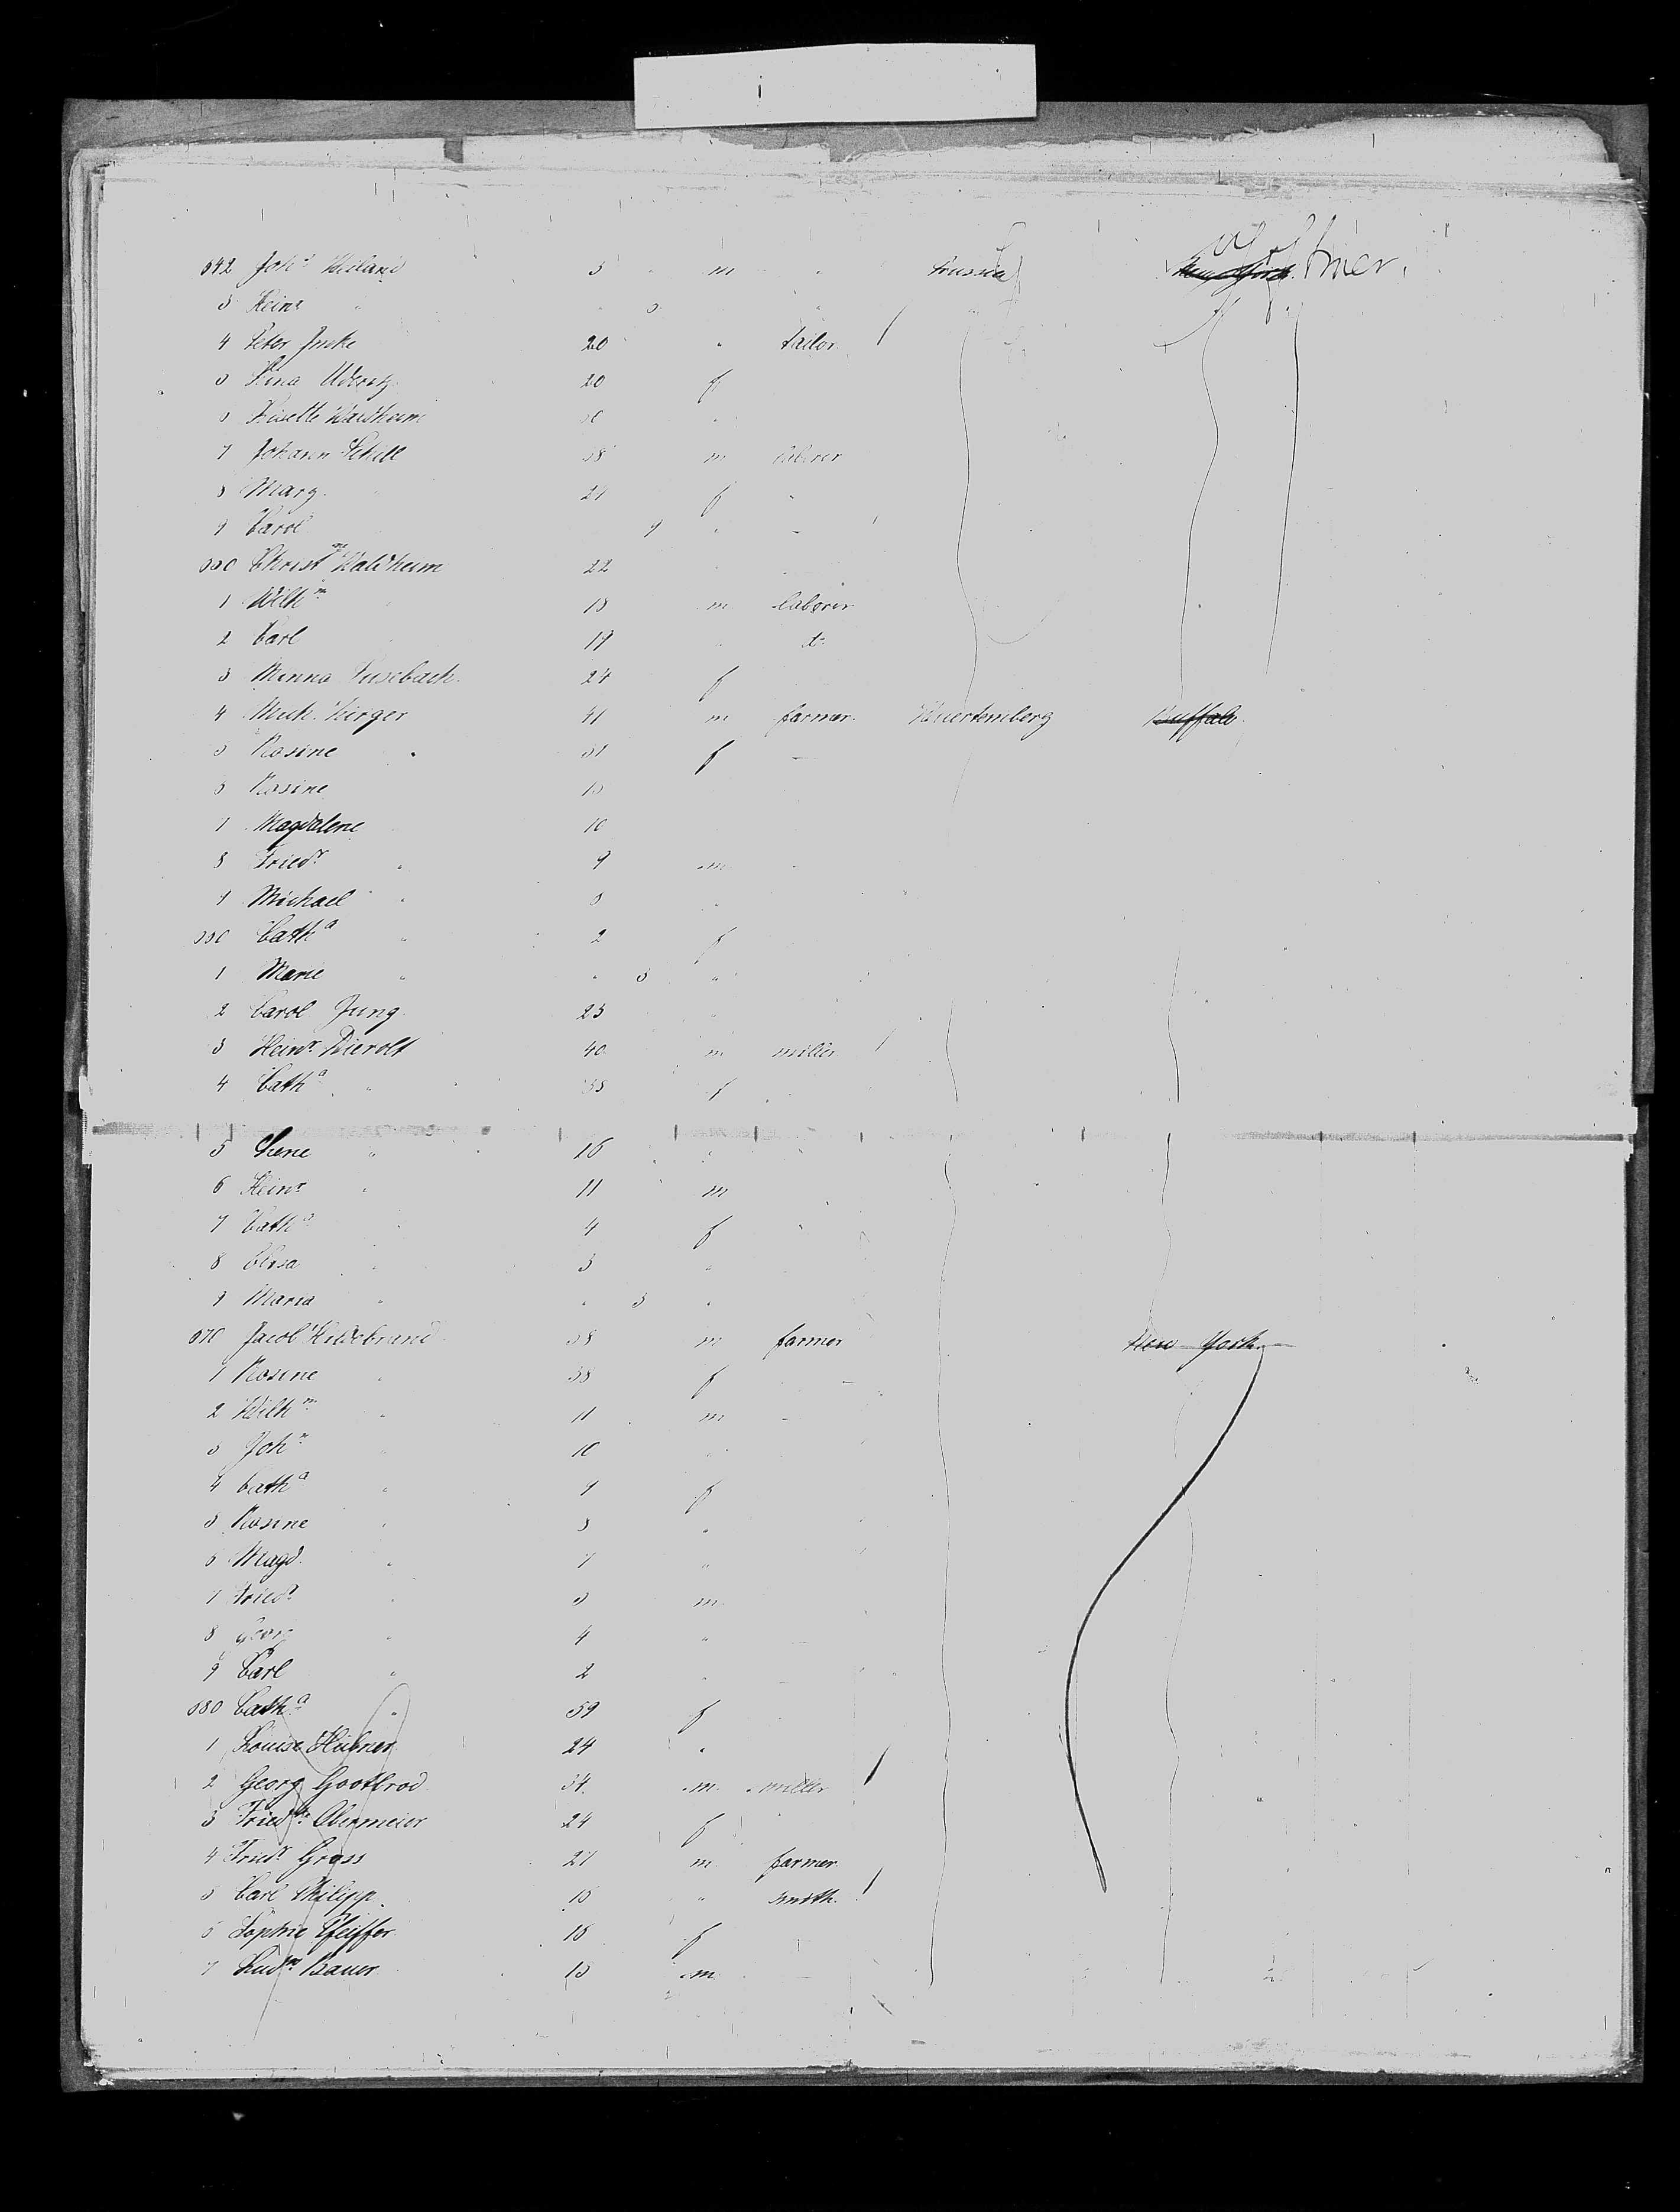 U S of Amer.
542 Joh.n Weiland 5 " m " Prussia New York
3 Heinr " " 5 "
4 Peter Jucke 20 " tailor
5 Lina 20 f
6 Lisette Waldheim "
7 Johann Schill 38 m laborer
8 Marg. " 27 f "
9 Carol 9 " -
550 Christ.ne Waldheim 22
1 Wilh.m " 18 m laborer
2 Carl 19 " do
3 Minna Susebach 24 f
4 Mich. 41 m farmer Wuertemberg Buffalo
5 Rosine " 31 f -
6 Rosine 15
7 Magdalene 10
8 Friedr " 9 m
9 Michael " 5 "
560 Cath.a " 2 f
1 Marie " " 3 "
2 Carol Jung 23 "
3 Heinr. Bierolf 40 m miller
4 Cath.a " 35 f
5 Lene " 16 "
6 Heinr " 11 m
7 Cath.a " 4 f
8 Elisa " 3 "
9 Maria " " 3 "
570 Jacob Hildebrand 38 m farmer New York
1 Rosine " 38 f
2 Wilh.m " 11 m -
3 Joh.n " 10 "
4 Cath.a " 9 f
5 Rosine " 8 "
6 Magd. " 7 "
7 Friedr " 5 m
8 Georg " 4 "
9 Carl " 2 "
580 Cath.a " 59 f
1 Louise Hübner 24 "
2 Georg Gootbrod 34 m miller
3 Fried.ke Obermeier 24 f
4 Friedr. Gross 27 m farmer
5 Carl Philipp 15 " smith
6 Sophie Pfeiffer 18 f
7 Ludw. Bauer 15 m -